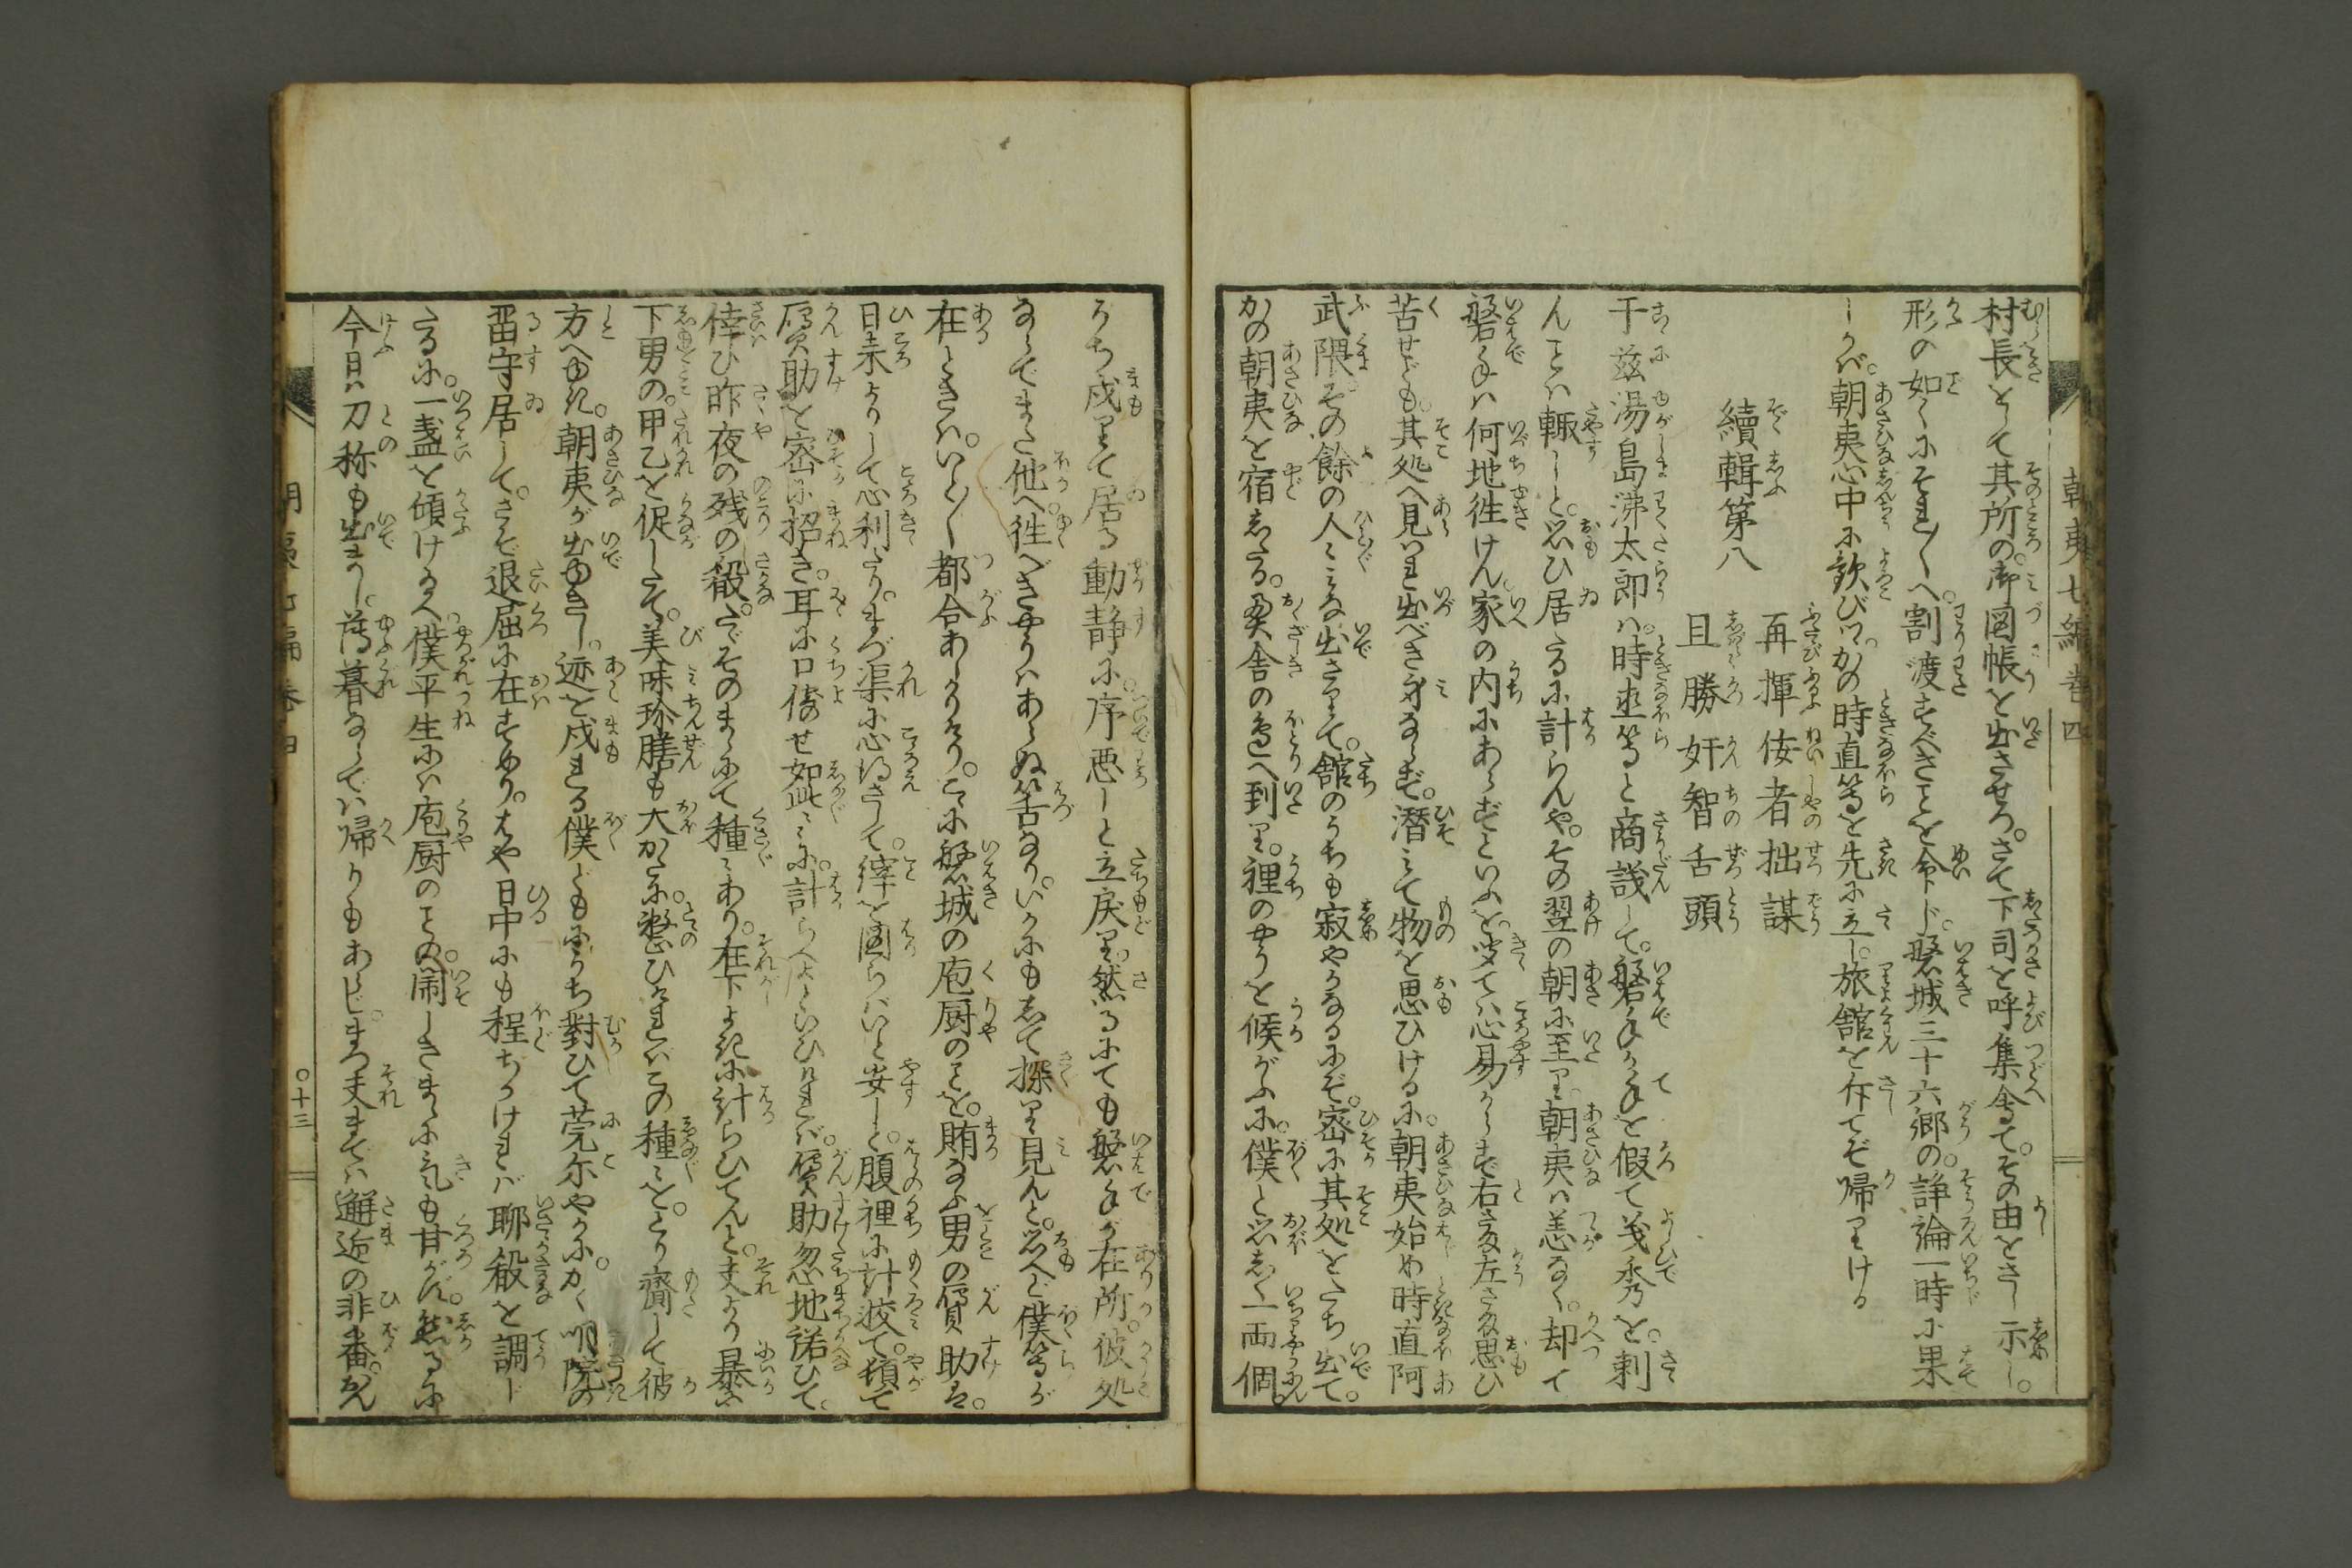 朝夷七編巻四
村長をして其所の。御図帳を出させつ。さて下司を呼集合て。その由をさし示し。
形の如くにそれ〳〵へ。割渡すべきことを令ド。磐城三十六郷の。諍論一時に果
しかバ。朝夷心中に歓びつ。かの時直等を先に立し。旅舘を斥てぞ帰りける
續輯第八
再揮佞者拙謀
且勝奸智舌頭
干茲湯島沸太郎ハ。時直等と商議して。磐手が手を假て義秀を。剌
んことハ輙しと。思ひ居たるに計らんや。その翌の朝に至り。朝夷ハ恙なく。却て
磐手ハ何地徃けん。家の内にあらずといふを。聞てハ心易からず右さま左さま思ひ
苦せども。其処へ見れ出べき身ならず。潜みて物を思ひける。に。朝夷始め時直阿
武隈。その餘の人〻みな出さりて。舘のうちも寂やかなるにぞ。密に其処をたち出て。
かの朝夷を宿したる。奥舎の邊へ到り。裡のやうを候がふに。僕と思しく一両個。
うち戍りて居る動静に。序悪しと立戻り。然るにても磐手が在所。彼処
ならでまた他へ。徃べきやうハあらぬ筈なり。いかにもして探り見んと。思へど僕等が
在ときハ。いと〳〵都合あしかりけり。こゝに磐城の庖厨のことを。賄なふ男の贋助は。
日来よりして心利たり。まづ渠に心得さして。縡を圖らバいと安しと。腹裡に計較て。頓て
贋助を密に招き。耳に口傍せ如此〻〻に。計らへよといひけれバ。贋助忽地諾ひて。
倖ひ昨夜の残の殽。さでそのまゝにて種〻あり。在下よきに計らひてんと。夫より暴に
下男の。甲乙を促したて。美味珍膳も大かたに。整ひけれバこの種〻を。とり齎して彼
方へゆき。朝夷が出ゆきし。迹を戍れる僕どもにうち對ひて莞尓やかに。かく明院の
畄守居して。さぞ退屈に在すめり。はや日中にも程ちかけれバ聊殽を調じ
たるに。一盞を傾け給へ。僕平生にハ庖厨のことの。閙しきまゝに氣も甘がず。然るに
今日ハ刀称も出まし。薄暮ならでハ帰りもあらじ。まづ夫までハ邂逅の非番。なん
朝夷七編巻四
〇十三